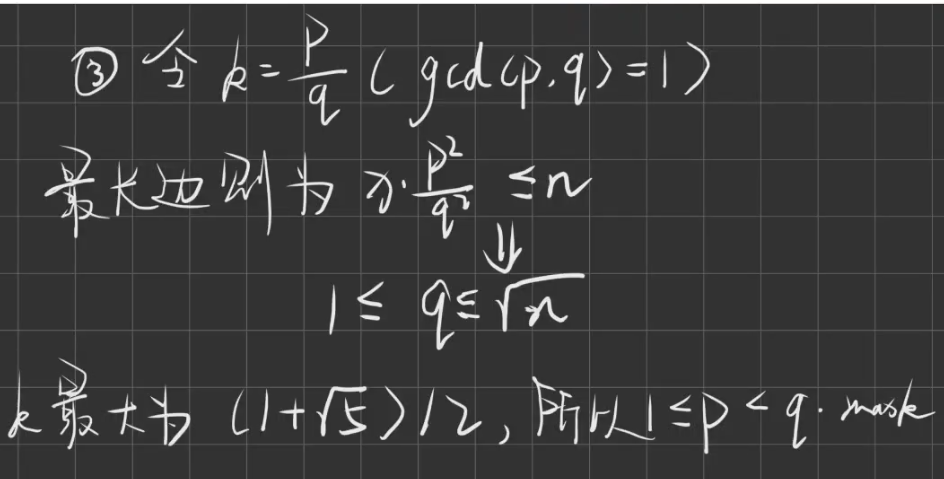 ③ 令 k=p/q (gcd(p,q)=1)
最长边则为 x·p²/q² ≤n
⇓
1≤ q≤√n
k最大为 (1+√5)/2, 所以1≤p<q·maxk